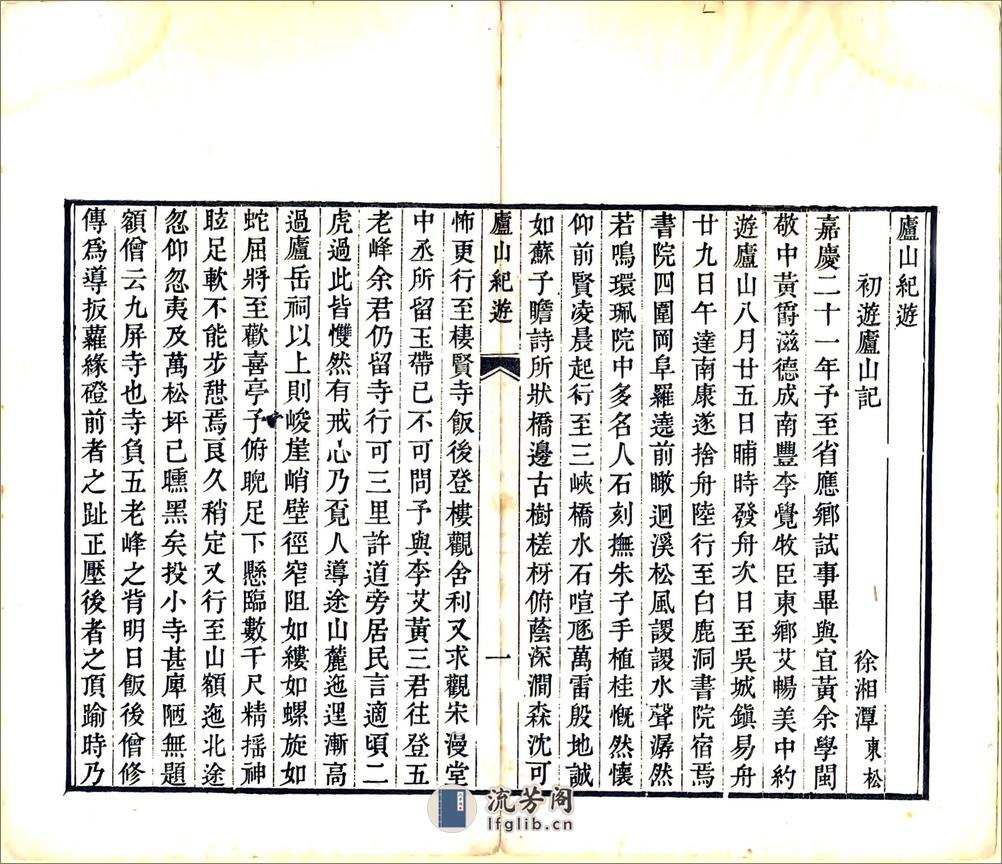 廬山紀遊
初遊廬山記
徐湘潭東松
嘉慶二十一年予至省應鄉試事畢與宜黃余學閩
敬中黃爵滋德成南豐李覺牧臣東鄉艾暢美中約
遊廬山八月廿五日晡時發舟次日至吳城鎮易舟
廿九日午達南康遂捨舟陸行至白鹿洞書院宿焉
書院四圍岡阜羅遶前瞰迴溪松風謖謖水聲潺然
若鳴環珮院中多名人石刻撫朱子手植桂慨然懷
仰前賢凌晨起行至三峽橋水石喧豗萬雷殷地誠
如蘇子瞻詩所狀橋邊古樹槎枒俯蔭深澗森沈可
廬山紀遊
一
怖更行至棲賢寺飯後登樓觀舍利又求觀宋漫堂
中丞所留玉帶已不可問予與李艾黃三君往登五
老峰余君仍留寺行可三里許道旁居民言適頃二
虎過此皆戄然有戒心乃覔人導途山麓迤逗漸高
過廬岳祠以上則峻崖峭壁徑窄阻如縷如螺旋如
蛇屈將至歡喜亭子俯睨足下懸臨數千尺精搖神
眩足軟不能步憩焉良久稍定又行至山額迤北途
忽仰忽夷及萬松坪已曛黑矣投小寺甚庳陋無題
額僧云九屏寺也寺負五老峰之背明日飯後僧修
傳為導扳蘿緣磴前者之趾正壓後者之頂踰時乃
流芳阁
lfglib.cn